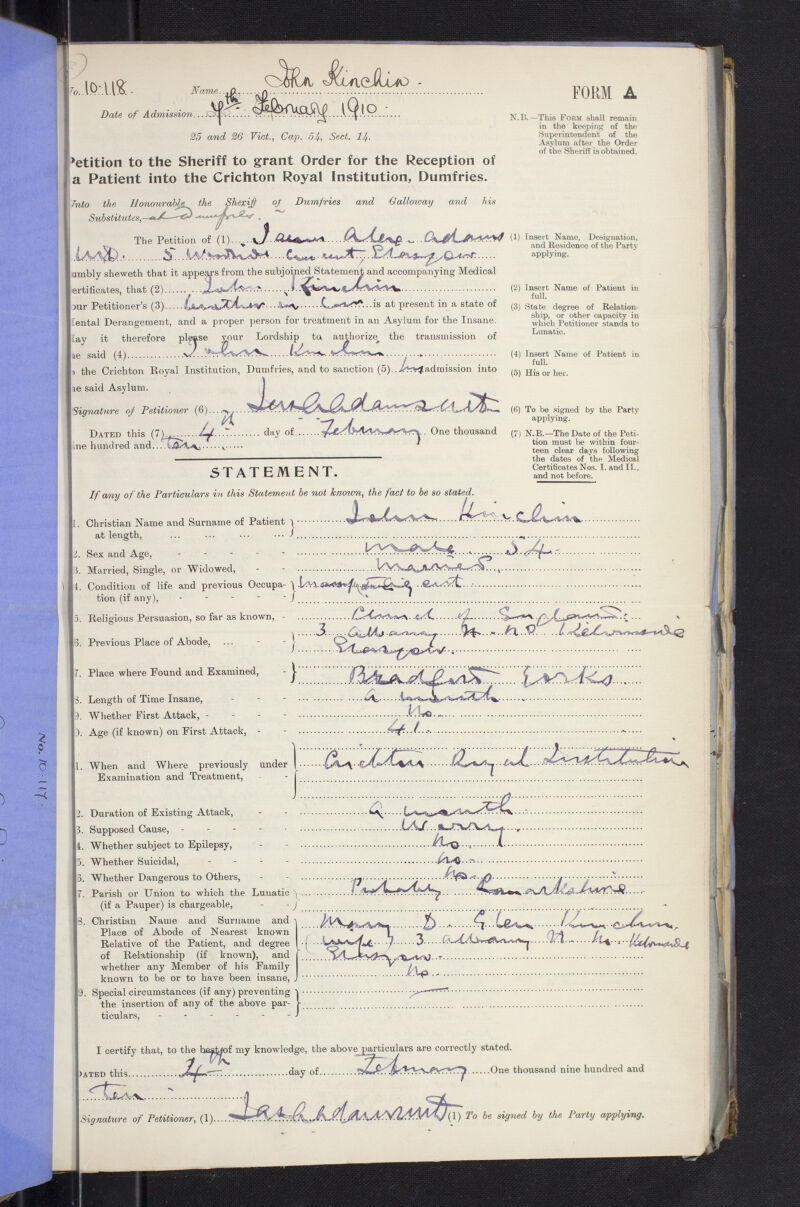 No. 10.118. Name John Kinchin. FORM A
Date of Admission 7th February 1910.
25 and 26 Vict., Cap. 54, Sect. 14.
N.B.—This FORM shall remain
in the keeping of the
Superintendent of the
Asylum after the Order
of the Sheriff is obtained.
Petition to the Sheriff to grant Order for the Reception of
a Patient into the Crichton Royal Institution, Dumfries.
Unto the Honourable the Sheriff of Dumfries and Galloway and his
Substitutes, at Dumfries.
The Petition of (1) James Alex. Adams
M.D. 5 Woodside Crescent, Glasgow
(1) Insert Name, Designation,
and Residence of the Party
applying.
umbly sheweth that it appears from the subjoined Statement and accompanying Medical
ertificates, that (2) John Kinchin
(2) Insert Name of Patient in
full.
our Petitioner's (3) brother in law is at present in a state of
ental Derangement, and a proper person for treatment in an Asylum for the Insane.
(3) State degree of Relation-
ship, or other capacity in
which Petitioner stands to
Lunatic.
ay it therefore please your Lordship to authorize the transmission of
he said (4) John Kinchin
(4) Insert Name of Patient in
full.
o the Crichton Royal Institution, Dumfries, and to sanction (5) his admission into
he said Asylum.
(5) His or her.
Signature of Petitioner (6) Jas A Adams M.D.
(6) To be signed by the Party
applying.
DATED this (7) 4th day of February One thousand
nine hundred and ten
(7) N.B.—The Date of the Peti-
tion must be within four-
teen clear days following
the dates of the Medical
Certificates Nos. I. and II.,
and not before.
STATEMENT.
If any of the Particulars in this Statement be not known, the fact to be so stated.
1. Christian Name and Surname of Patient
at length, ... ... ... ... John Kinchin
2. Sex and Age, - - - - - Male. 54.
3. Married, Single, or Widowed, - - Married.
4. Condition of life and previous Occupa-
tion (if any), - - - - -
5. Religious Persuasion, so far as known, - Church of England.
6. Previous Place of Abode, ... 3 Albany Kelvinside
Glasgow.
7. Place where Found and Examined, - Bradford Yorks.
8. Length of Time Insane, - - a month
9. Whether First Attack, - - - - No.
0. Age (if known) on First Attack, - - 41.
1. When and Where previously under
Examination and Treatment, - - Crichton Royal Institution
2. Duration of Existing Attack, - - a month.
3. Supposed Cause, - - - - - Worry.
4. Whether subject to Epilepsy, - - No.
5. Whether Suicidal, - - - - No.
6. Whether Dangerous to Others, - - No.
7. Parish or Union to which the Lunatic
(if a Pauper) is chargeable, - - Probably Lanarkshire
8. Christian Name and Surname and
Place of Abode of Nearest known
Relative of the Patient, and degree
of Relationship (if known), and
whether any Member of his Family
known to be or to have been insane,
Mary D. Glen Kinchin.
(wife) 3 Albany Kelvinside
Glasgow.
No.
9. Special circumstances (if any) preventing
the insertion of any of the above par-
ticulars, - - - - - -
I certify that, to the best of my knowledge, the above particulars are correctly stated.
DATED this 4th day of February One thousand nine hundred and
ten
Signature of Petitioner, (1) Jas A Adams M.D. (1) To be signed by the Party applying.
No. 10.117